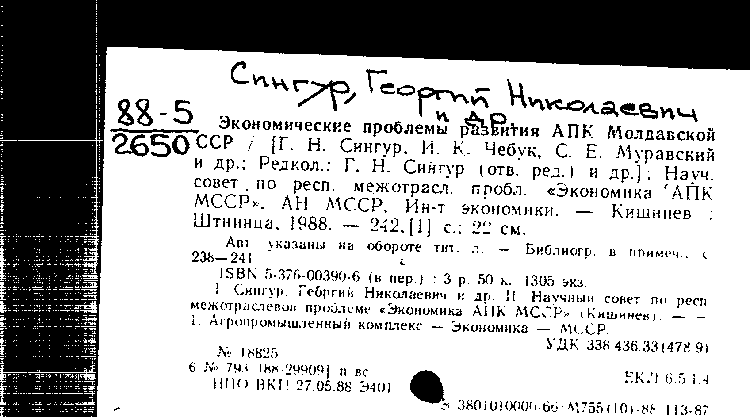 Сингур, Георгий Николаевич
и др.
88-5
2650
Экономические проблемы развития АПК Молдавской
ССР / [Г. Н. Сингур, И. К. Чебук, С. Е. Муравский
и др.; Редкол.: Г. Н. Сингур (отв. ред.) и др.]; Науч.
совет по респ. межотрасл. пробл. «Экономика АПК
МССР», АН МССР, Ин-т экономики. — Кишинев :
Штиинца, 1988. — 242,[1] с.; 22 см.
Авт. указаны на обороте тит. л. — Библиогр. в примеч., с.
238—241
ISBN 5-376-00390-6 (в пер.) : 3 р. 50 к. 1305 экз.
I. Сингур, Георгий Николаевич и др. II. Научный совет по респ.
межотраслевой проблеме «Экономика АПК МССР» (Кишинев). — —
1. Агропромышленный комплекс — Экономика — МССР.
УДК 338.436.33(478.9)
№ 18825
6 № 793 [88-29909] п вс
ЕКЛ 6.5.1.4
НПО ВКП 27.05.88 Э401
Э 3801010000-66 М755(10)-88 113-87